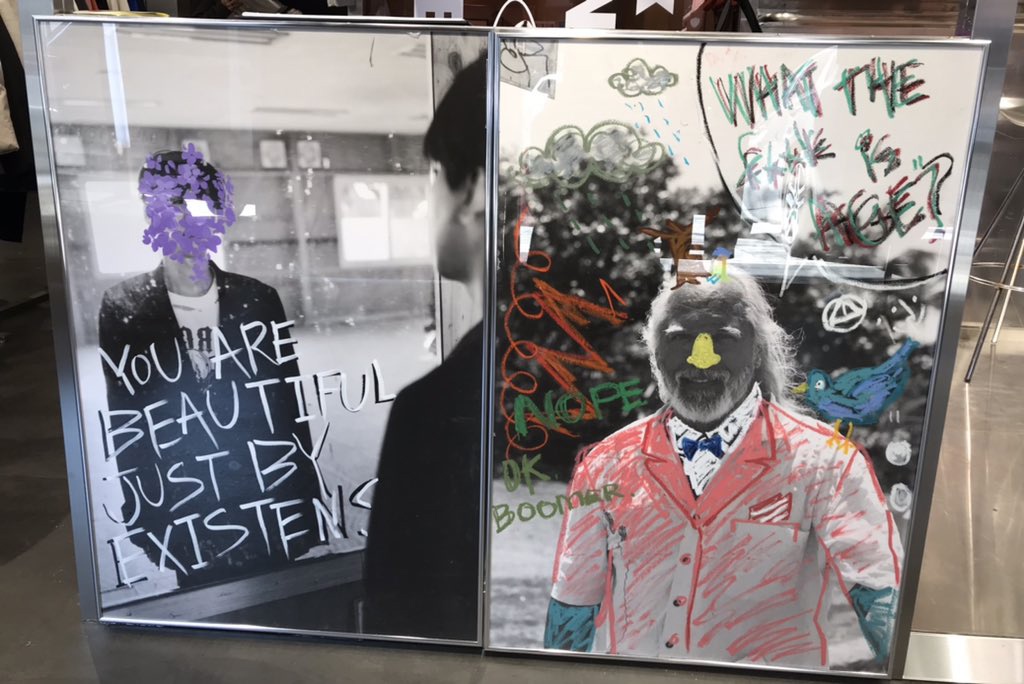 YOU ARE
BEAUTIFUL
JUST BY
EXISTENS
WHAT THE
IS
AGE?
NOPE
OK
BOOMER